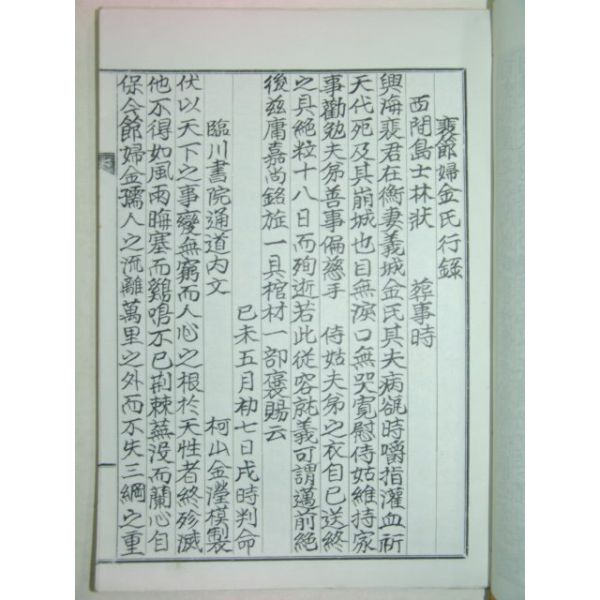 裵節婦金氏行錄
西間島士林狀 葬事時
興海裵君在衡妻義城金氏其夫病欲時嚼指灌血祈
天代死及其崩城也目無淚口無哭寬慰侍姑維持家
事勸勉夫弟善事偏慈手 侍姑夫弟之衣自已送終
之具絕粒十八日而殉逝若此從容就義可謂邁前絕
後玆庸嘉尚銘旌一具棺材一部褒賜云
己未五月初七日戌時判命
臨川書院通道內文 柯山金瀅模製
伏以天下之事變無窮而人心之根於天性者終殄滅
他不得如風雨晦塞而鷄鳴不已荊棘蕪沒而蘭心自
保今節婦金孺人之流離萬里之外而不失三綱之重